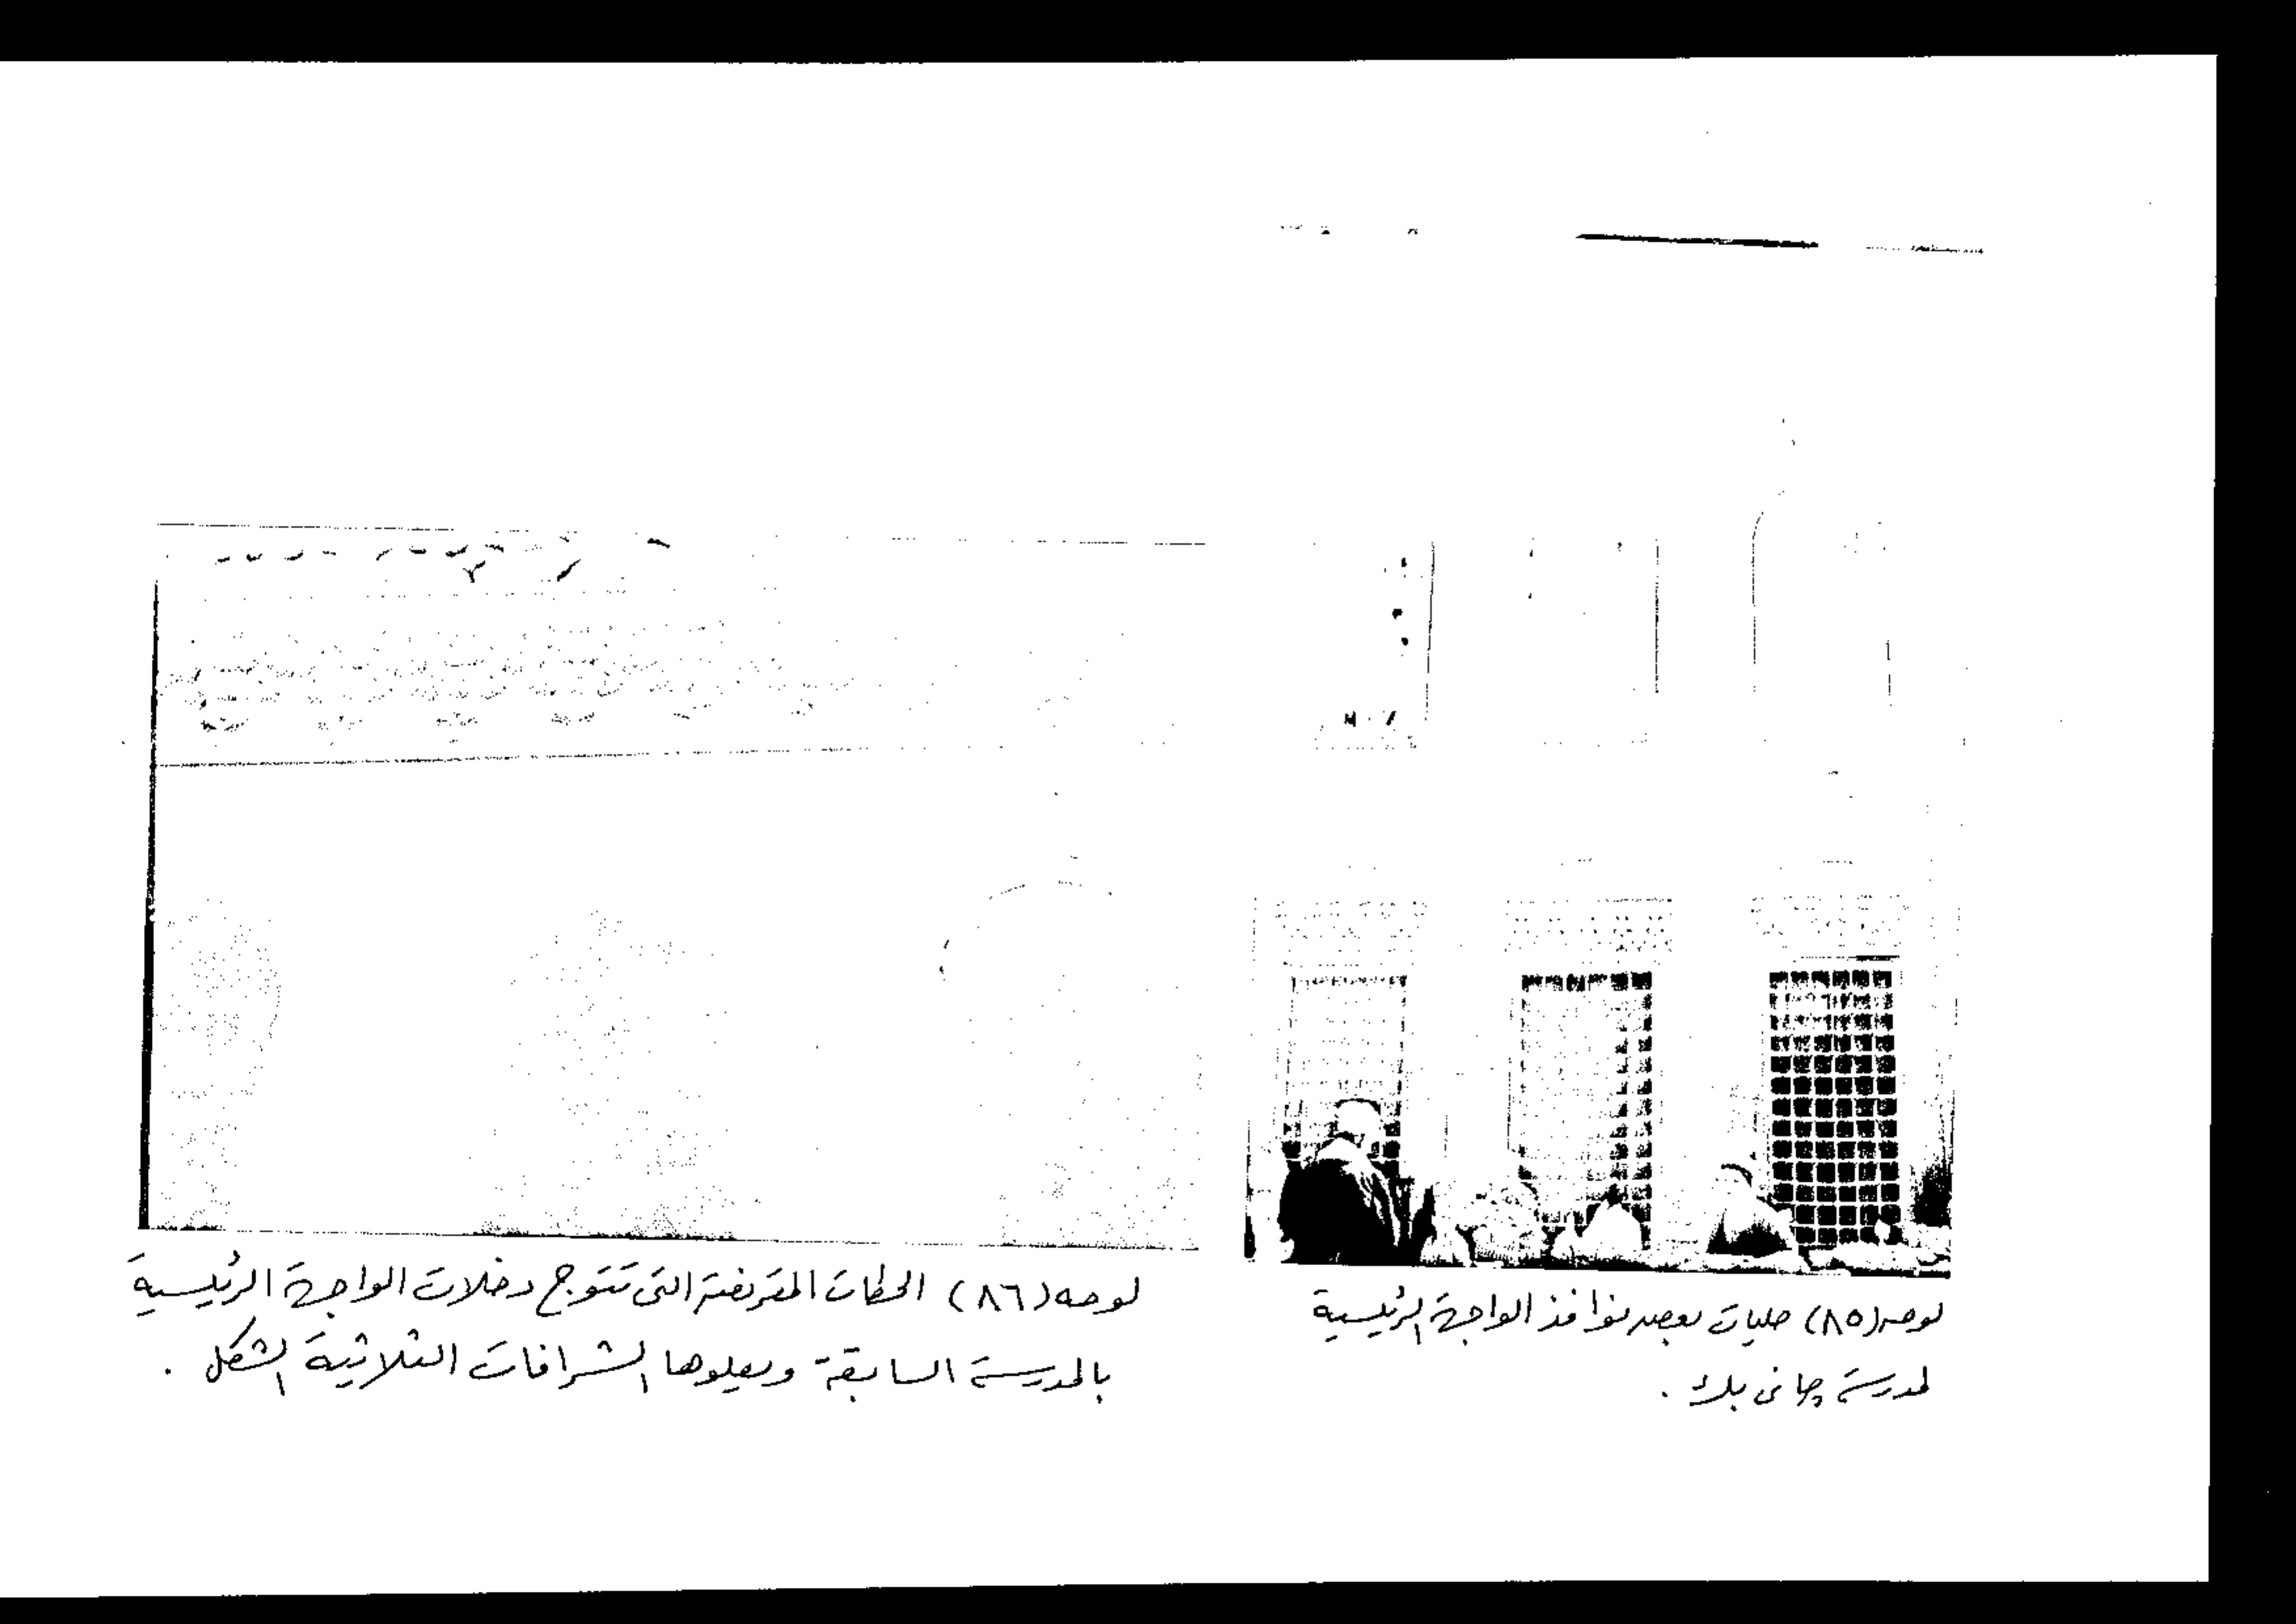 لوحه (٨٥) حليات بعض نوافذ الواجهة الرئيسية
لمدرسة جانى بك .
لوحه (٨٦) الحطات المقرنصة التى تتوج دخلات الواجهة الرئيسية
بالمدرسة السابقة ويعلوها الشرافات الثلاثية الشكل .